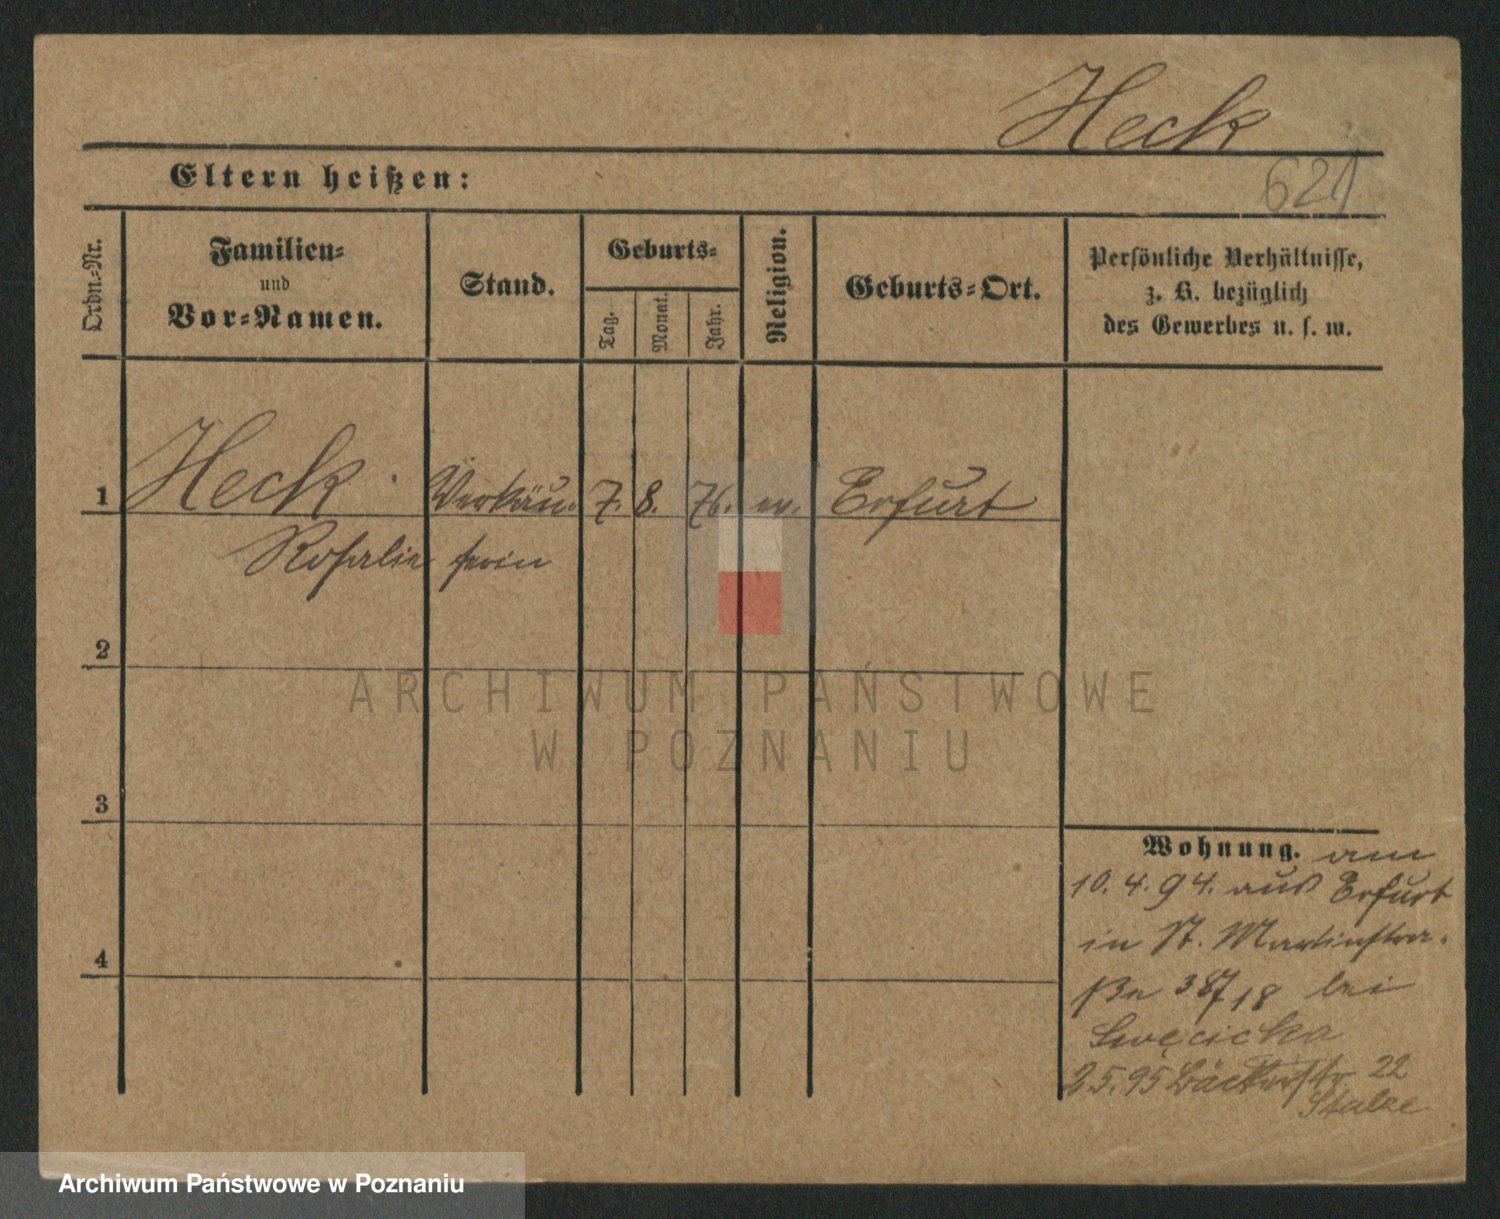 Heck
621
Eltern heißen:
Ordn.-Nr.
Familien-
und
Vor-Namen.
Stand.
Geburts-
Tag.
Monat.
Jahr.
Religion.
Geburts-Ort.
Persönliche Verhältnisse,
z. B. bezüglich
des Gewerbes u. s. w.
1 Heck Verkäu- 7. 8. 76. ev. Erfurt
Rosalie ferin
2
3
4
Wohnung. am
10. 4. 94. aus Erfurt
in St. Martinstra-
ße bei
Swęcicka
2.5.95 Bäckerstr 22
ARCHIWUM PAŃSTWOWE
W POZNANIU
Archiwum Państwowe w Poznaniu